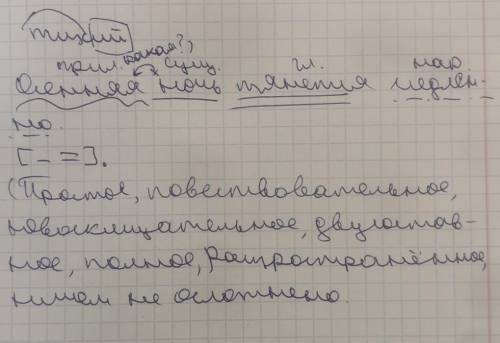 тихий
какая?)
прил. сущ. гл. нар.
Осенняя ночь тянется медлен-
но.
[– =].
(Простое, повествовательное,
невосклицательное, двусостав-
ное, полное, распространённое,
ничем не осложнено.